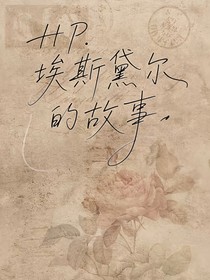 HP.
埃斯黛尔
的故事.